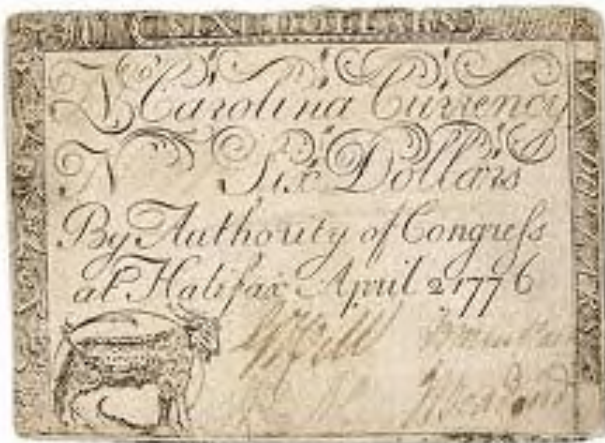 SIX DOLLARS
N Carolina Currency
N Six Dollars
By Authority of Congreſs
at Halifax April 2 1776